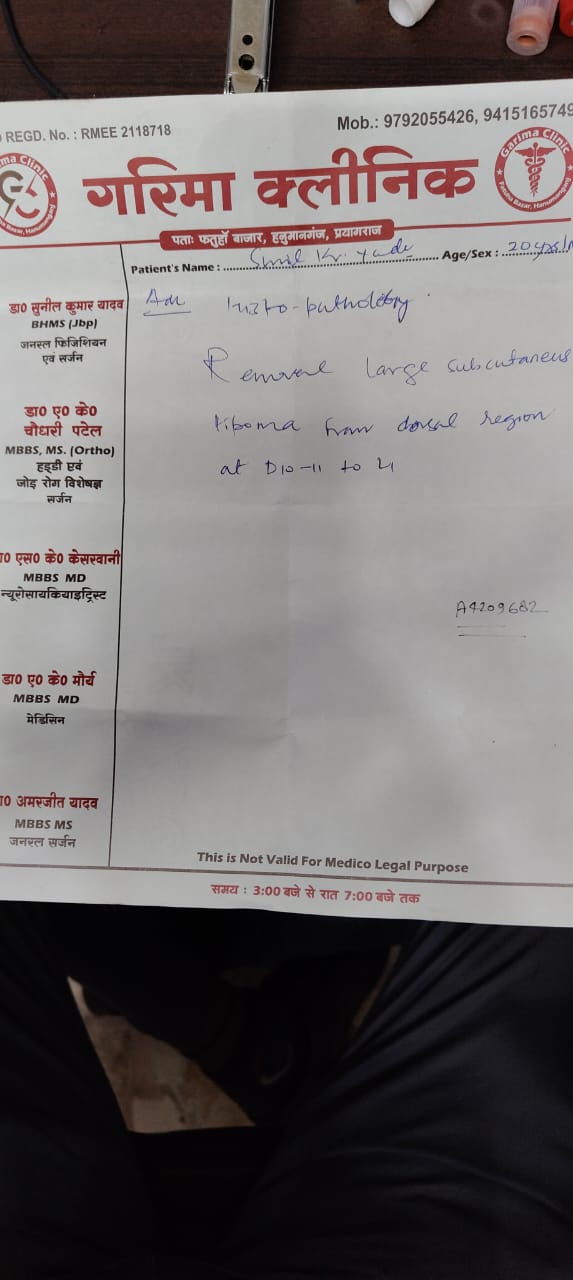 REGD. No. : RMEE 2118718
Mob.: 9792055426, 9415165749
Garima Clinic
गरिमा क्लीनिक
पताः फतुहाँ बाजार, हनुमानगंज, प्रयागराज
Patient's Name : Sunil Kr. Yadv Age/Sex : 20 yrs/M
डा0 सुनील कुमार यादव
BHMS (Jbp)
जनरल फिजिशियन
एवं सर्जन
डा0 ए0 के0
चौधरी पटेल
MBBS, MS. (Ortho)
हड्डी एवं
जोड़ रोग विशेषज्ञ
सर्जन
0 एस0 के0 केसरवानी
MBBS MD
न्यूरोसायकियाइट्रिस्ट
डा0 ए0 के0 मौर्य
MBBS MD
मेडिसिन
0 अमरजीत यादव
MBBS MS
जनरल सर्जन
Adv Histo-pathology
Removal large subcutaneus
liboma from dorsal region
at D10-11 to L1
A4209682
This is Not Valid For Medico Legal Purpose
समय : 3:00 बजे से रात 7:00 बजे तक